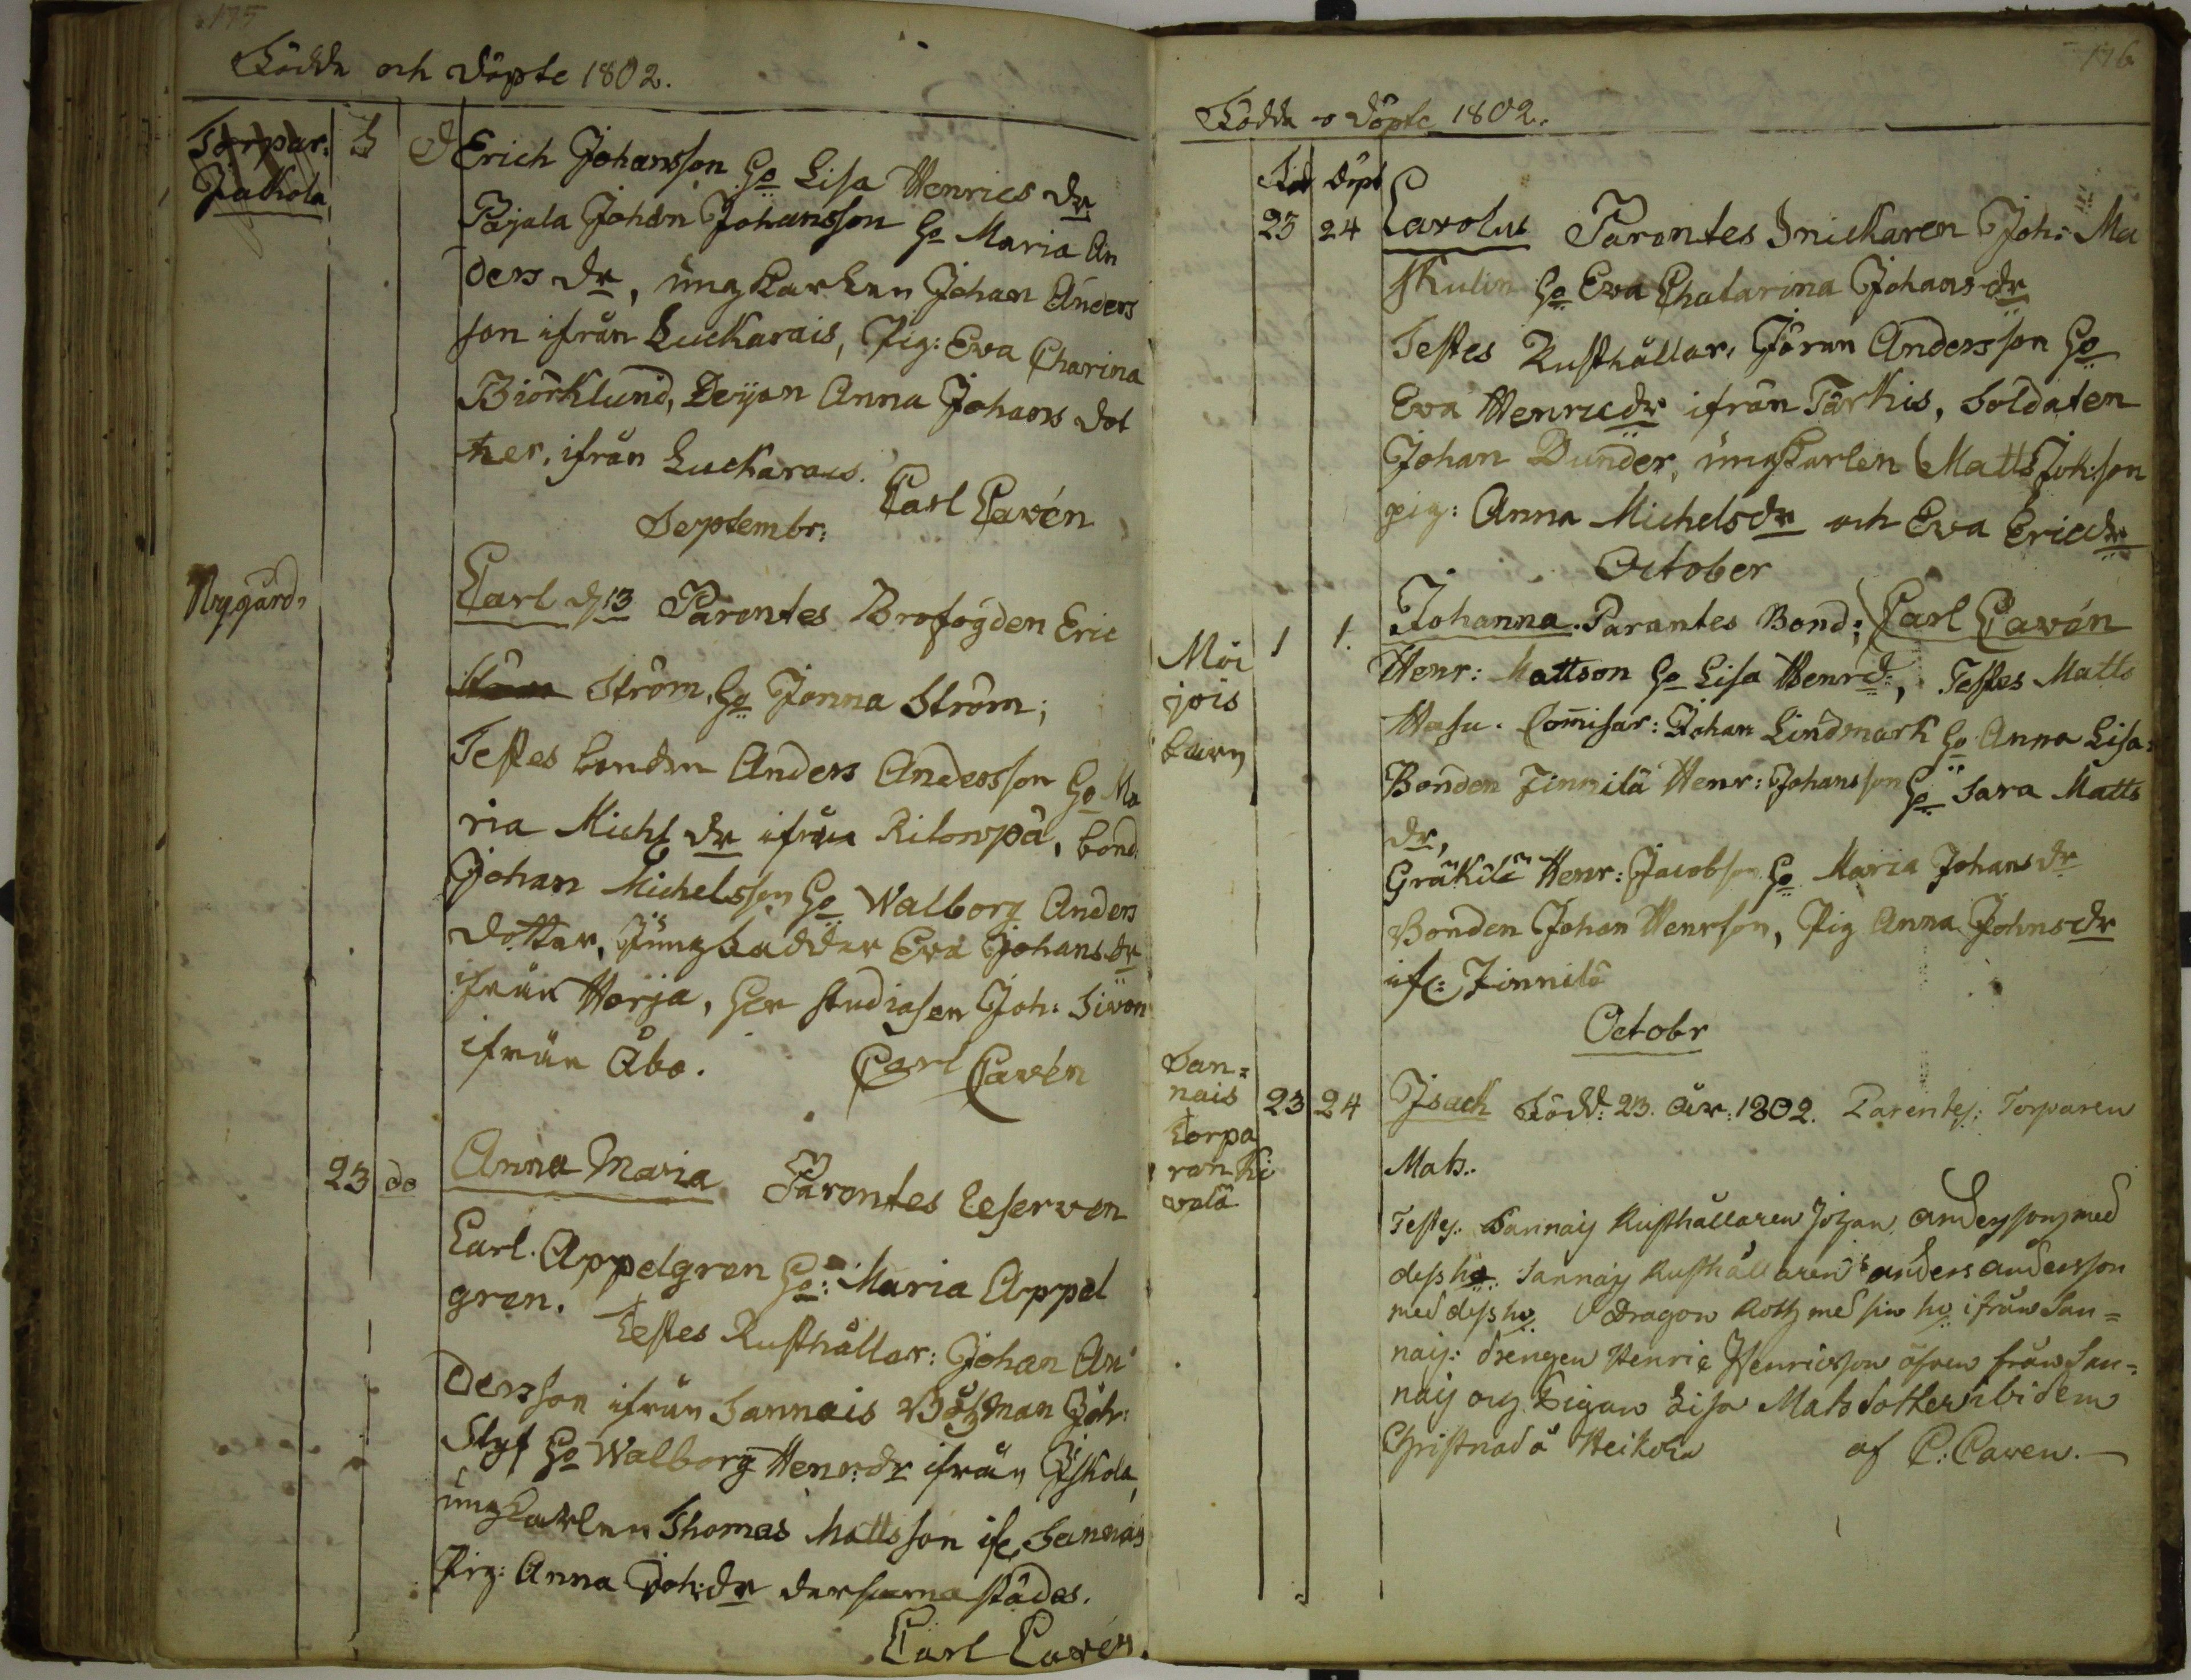 175
Födda och döpte 1802.
Torpar:
Jakola
Erich Johansson Ho Lisa Henrics dr
Pajala Johan Johansson Ho Maria An
ders dr, ungkarlen Johan Anders
son ifrån Luckarais, Pig: Eva Charina
Biörklund, Deijan Anna Johans dot
ter, ifrån Luckarais.
Carl Cavén
Septembr:
Nygård,
Carl d 13 Parentes Brofogden Eric
Ström, Ho Jonna Ström;
Testes bonden Anders Andersson Ho Ma
ria Michs dr ifrån Ritovpä, bond:
Johan Michelsson Ho Walborg Anders
dotter, Jungkadder Eva Johans dr
ifrån Horja, Her studiosen Joh: Sivon
ifrån Åbo.
Carl Cavén
23 do Anna Maria Parentes Reserven
Carl Appelgren Ho: Maria Appel
gren.
Testes Rusthållar: Johan An
dersson ifrån Sannais Båtzman Joh:
Slyf Ho Walborg Henr:dr ifrån Iskola,
ungkarlen Thomas Mattsson ifr Sannais
Pig: Anna Joh:dr dersamastädes.
Carl Cavén.
176
Födda o döpte 1802.
Föd döpt
23 24 Carolus Parentes Snickaren Joh: Ma
skulin Ho Eva Chatarina Johansdr
Testes Rusthållar, Jöran Andersson Ho
Eva Henricdr ifrån Tarkis, Soldaten
Johan Dunder, ungkarlen Matts Joh:son
pig: Anna Michelsdr och Eva Ericdr
October
Carl Cavén
Moi
jois
barn
1 1. Johanna. Parentes Bond:
Henr: Mattson Ho Lisa Henrd:, Testes Matts
Hasu. Comisar: Johan Lindmark Ho Anna Lisa:
Bonden Finnilä Henr: Johansson Ho Sara Matts
dr,
Gräkilä Henr: Jacobson Ho Maria Johansdr
Bonden Johan Henrson, Pig Anna Johnsdr
ifr: Finnilä
Octobr
San=
nais
torpa
ren Ki
valä
23 24 Isach Född: 23. 1802. Parentes: Torparen
Mats.
Testes: Sannais Rusthållaren Johan Andersson med
dess ho. Sannais Rusthållaren Anders Andersson
med dess ho Dragon Roth med sin ho ifrån San=
nais: drengen Henric Henricsson äfven från San=
nais och Pigan Lisa Matsdotter ibidem
Christnad å Heikola af C: Caven.